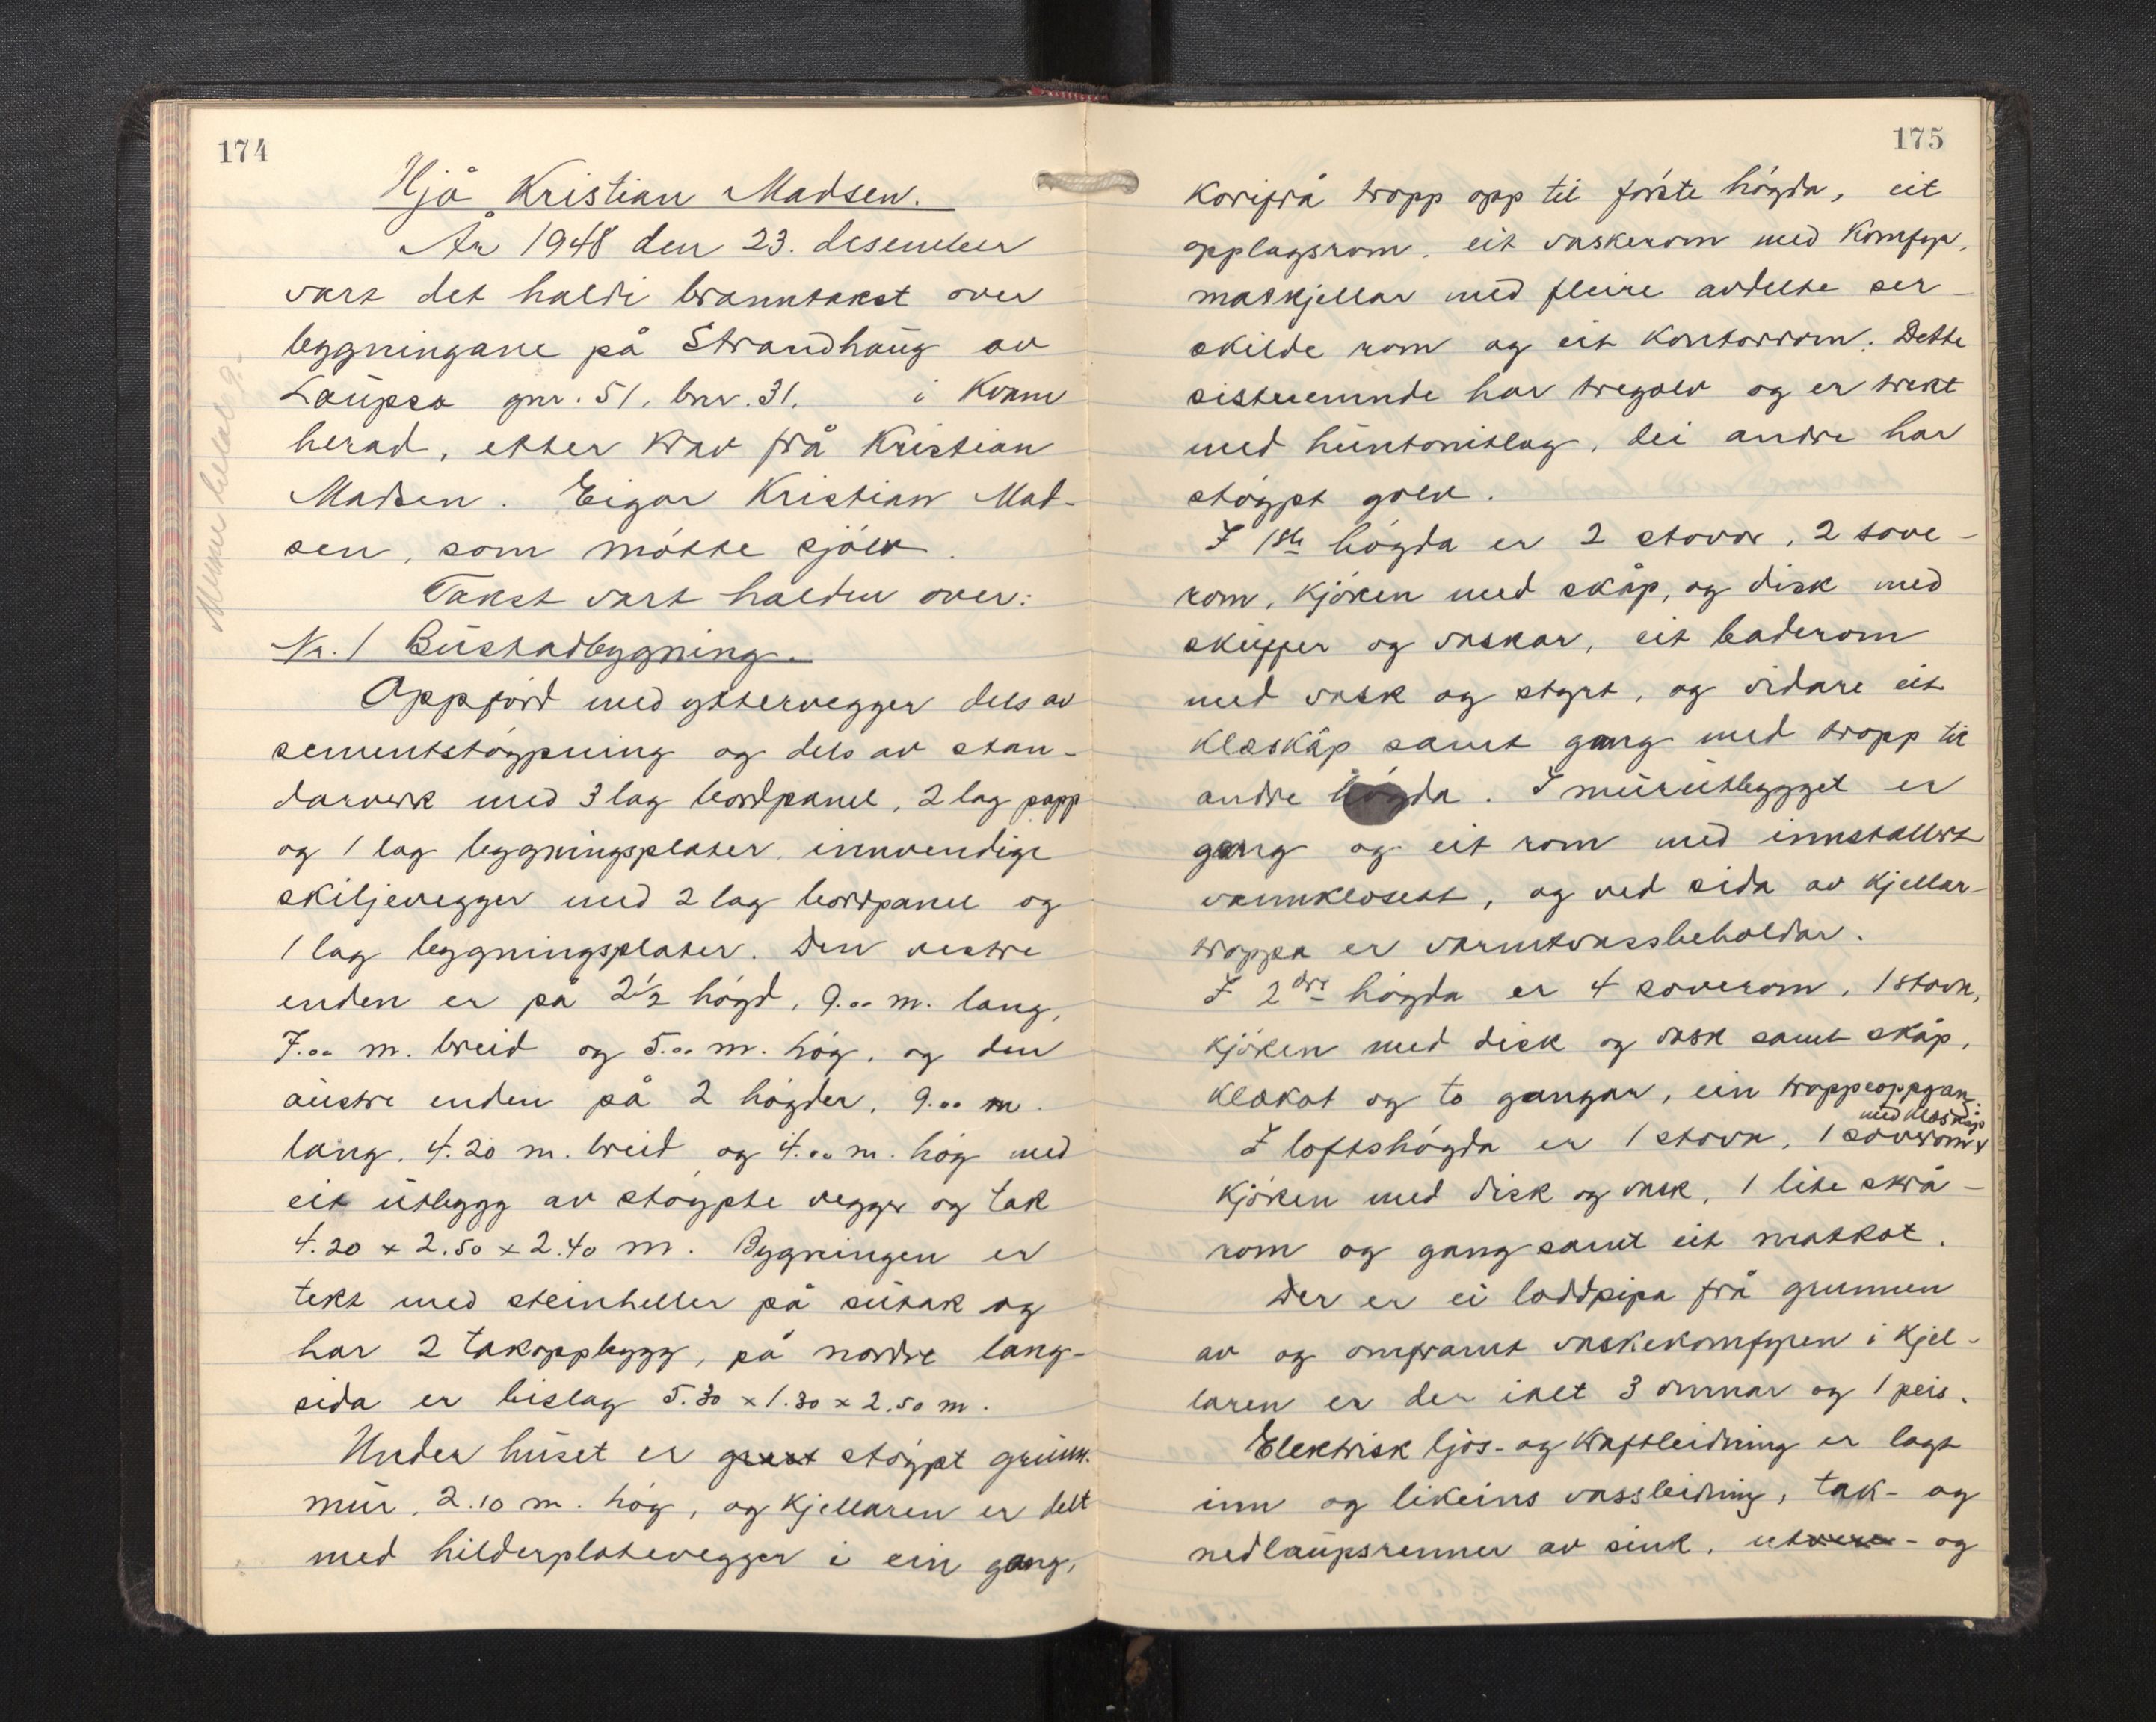 174
Hjå Kristian Madsen.
År 1948 den 23. desember
vart det haldi branntakst over
bygningane på Strandhaug av
Laupsa gnr. 51, bnr. 31. i Kvam
herad, etter krav frå Kristian
Madsen. Eigar Kristian Mad-
sen, som møtte sjølv.
Takst vart halden over:
Nr. 1 Bustadbygning.
Oppførd med yttervegger dels av
sementstøypning og dels av stan-
darverk med 3 lag bordpanel, 2 lag papp
og 1 lag bygningsplater, innvendige
skiljevegger med 2 lag bordpanel og
1 lag bygningsplater. Den vestre
enden er på 2½ høgd, 9.00 m. lang,
7.00 m. breid og 5.00 m. høg, og den
austre enden på 2 høgder, 9.00 m.
lang, 4.20 m. breid og 4.00 m. høg med
eit utbygg av støypte vegger og tak
4.20 x 2.50 x 2.40 m. Bygningen er
tekt med steinheller på sutak og
har 2 takoppbygg, på nordre lang-
sida er bislag 5.30 x 1.30 x 2.50 m.
Under huset er støypt grunn-
mur, 2.10 m. høg, og kjellaren er delt
med hilderplatevegger i ein gang,
175
korifrå tropp opp til fórste høgda, eit
opplagsrom, eit vaskerom med komfyr,
matkjellar med fleire avdelte ser-
skilde rom og eit kontorrom. Dette
sistnemnde har tregolv og er trekt
med huntonitlag, dei andre har
støypt golv.
I 1ste høgda er 2 stovor, 2 sove-
rom, kjøken med skåp, og disk med
skuffer og vaskar, eit baderom
med vask og styrt, og vidare eit
klæskåp samt gang med tropp til
andre høgda. I murutbygget er
gang og eit rom med innstallert
vannklosett, og ved sida av kjellar-
troppa er varmtvassbeholdar.
I 2dre høgda er 4 soverom, 1 stova,
kjøken med disk og vask samt skåp,
klækot og to gangar, ein troppeoppgang.
med klæskåp
I loftshøgda er 1 stova, 1 soverom
kjøken med disk og vask, 1 lite skrå-
rom og gang samt eit matkot.
Der er ei loddpipa frå grunnen
av og omframt vaskekomfyren i kjel-
laren er der ialt 3 omnar og 1 peis.
Elektrisk ljos- og kraftleidning er lagt
inn og likeins vassleidning, tak- og
nedlaupsrenner av sink, - og